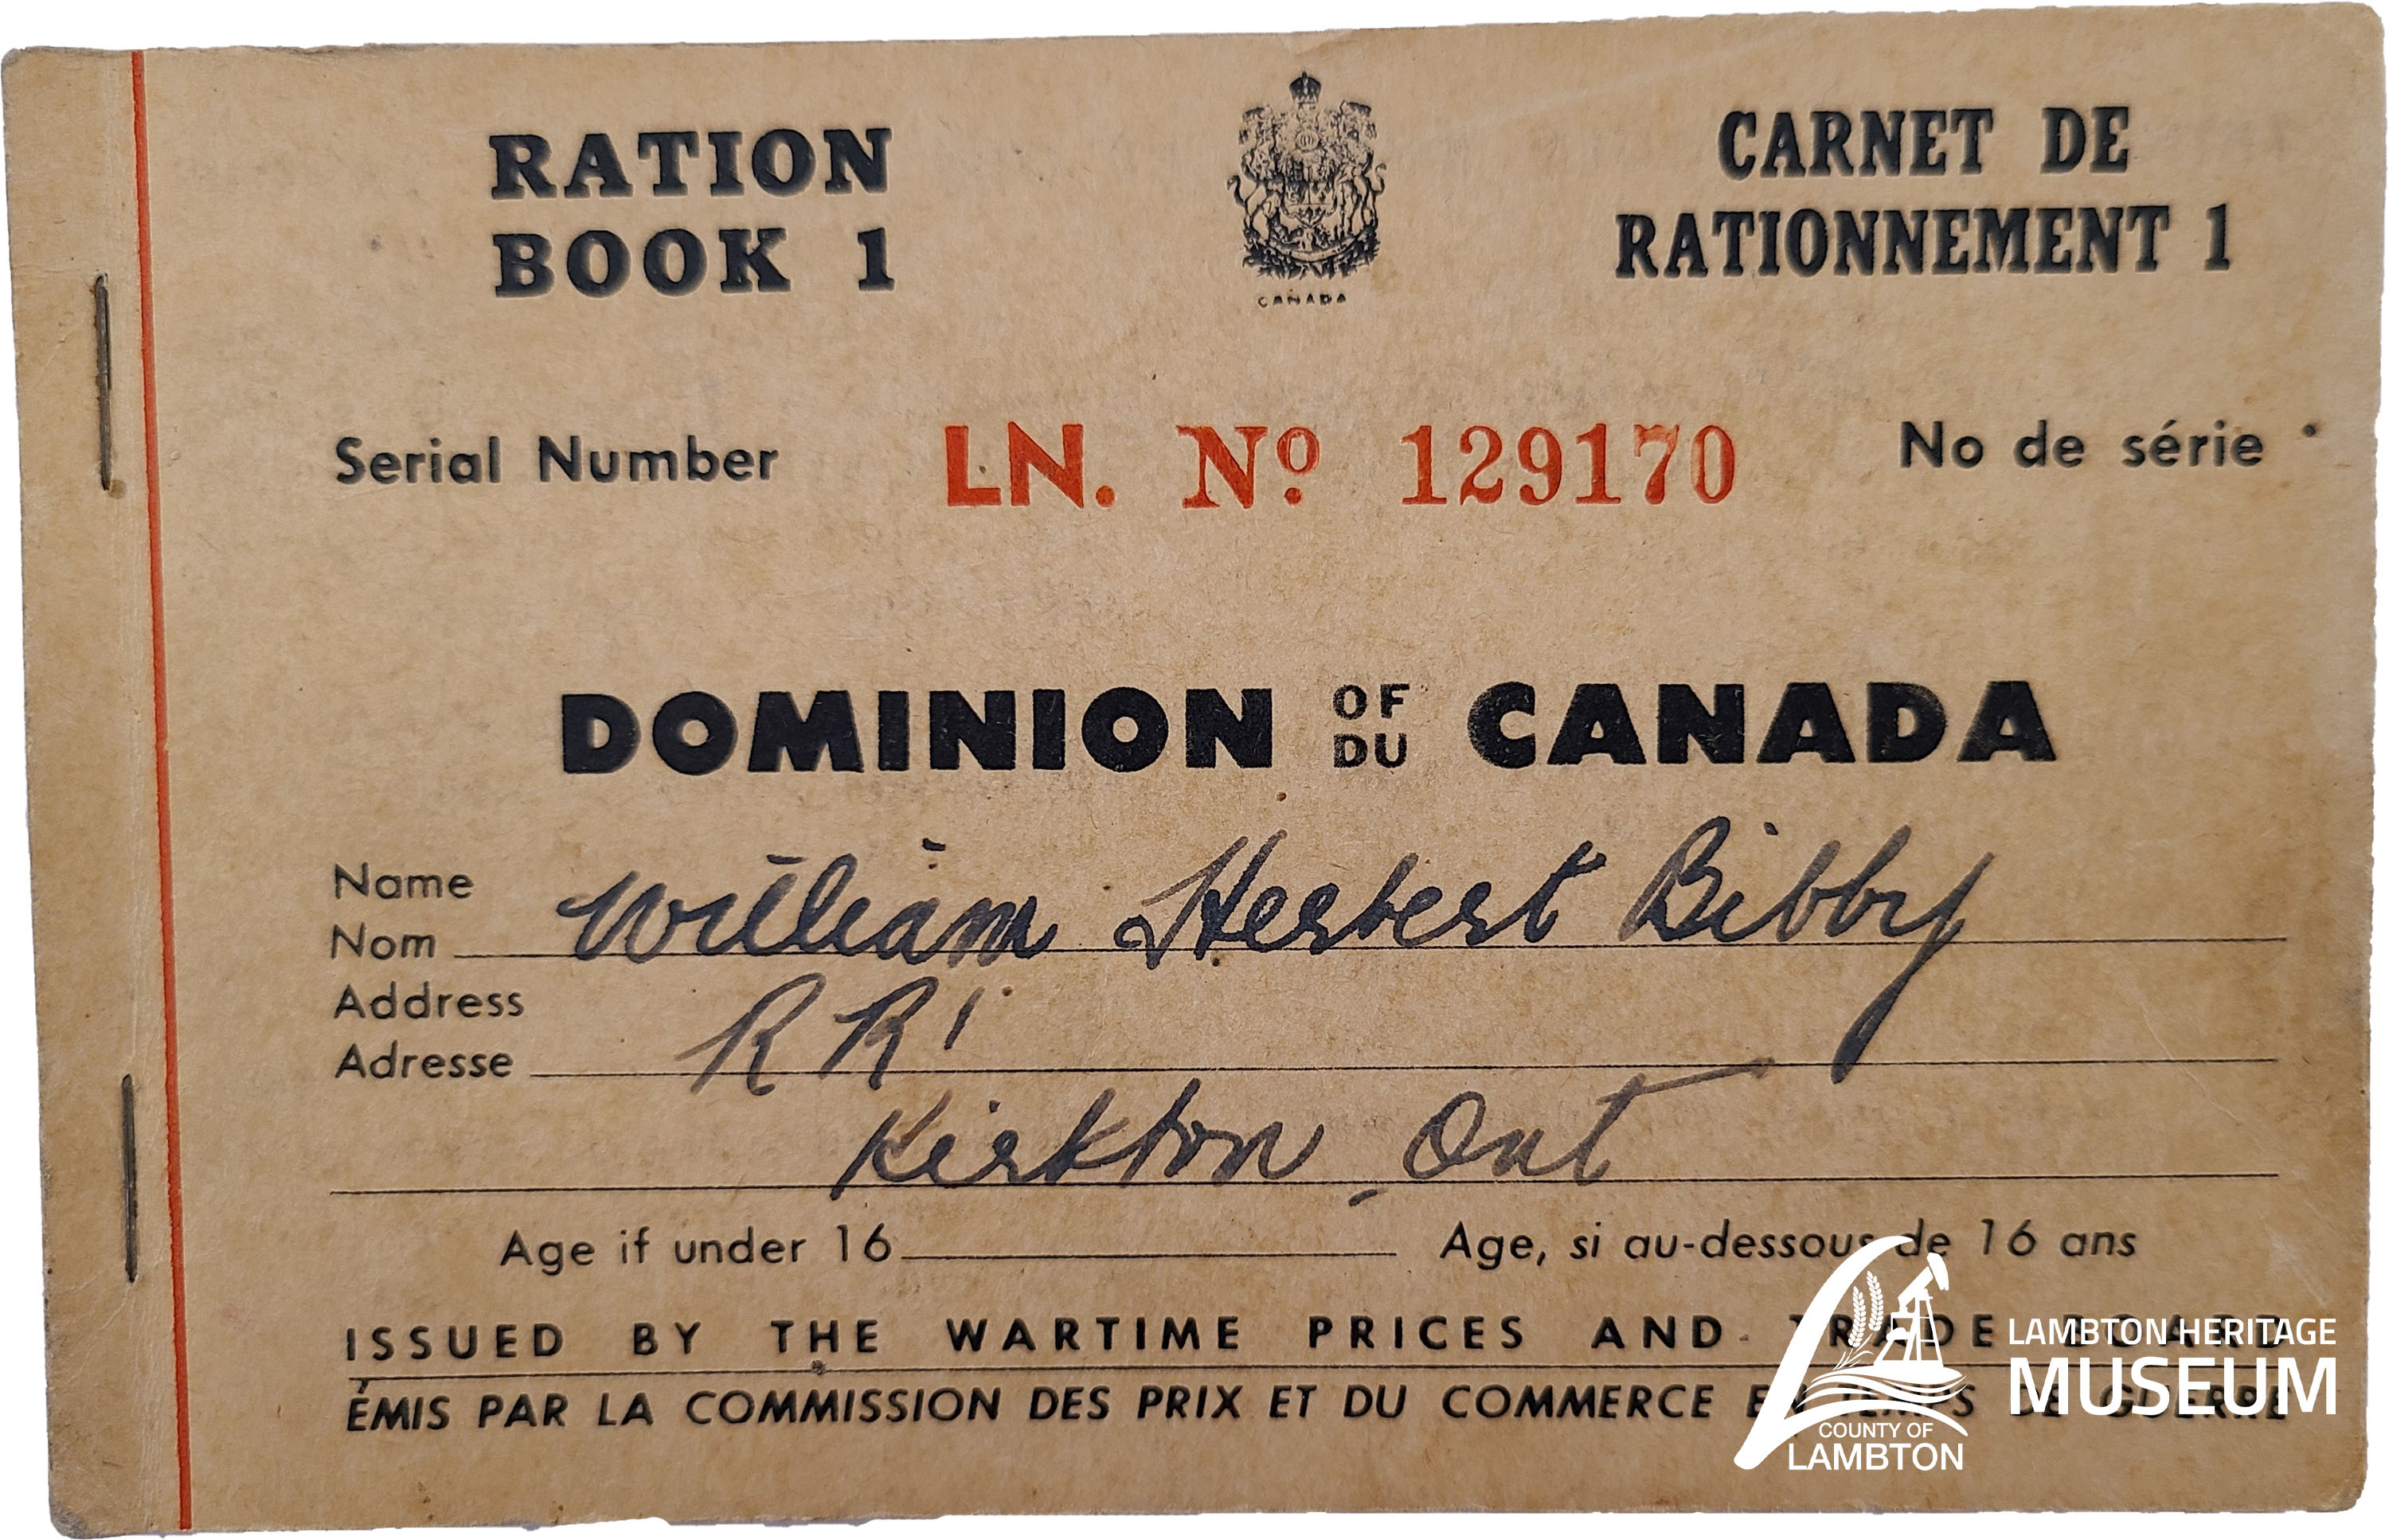 RATION
BOOK 1
CANADA
CARNET DE
RATIONNEMENT 1
Serial Number LN. Nº 129170 No de série
DOMINION OF DU CANADA
Name
Nom William Herbert Bibby
Address
Adresse R R 1
Kirkton, Ont
Age if under 16 Age, si au-dessous de 16 ans
ISSUED BY THE WARTIME PRICES AND TRADE BOARD
ÉMIS PAR LA COMMISSION DES PRIX ET DU COMMERCE EN TEMPS DE GUERRE
LAMBTON HERITAGE
MUSEUM
COUNTY OF
LAMBTON